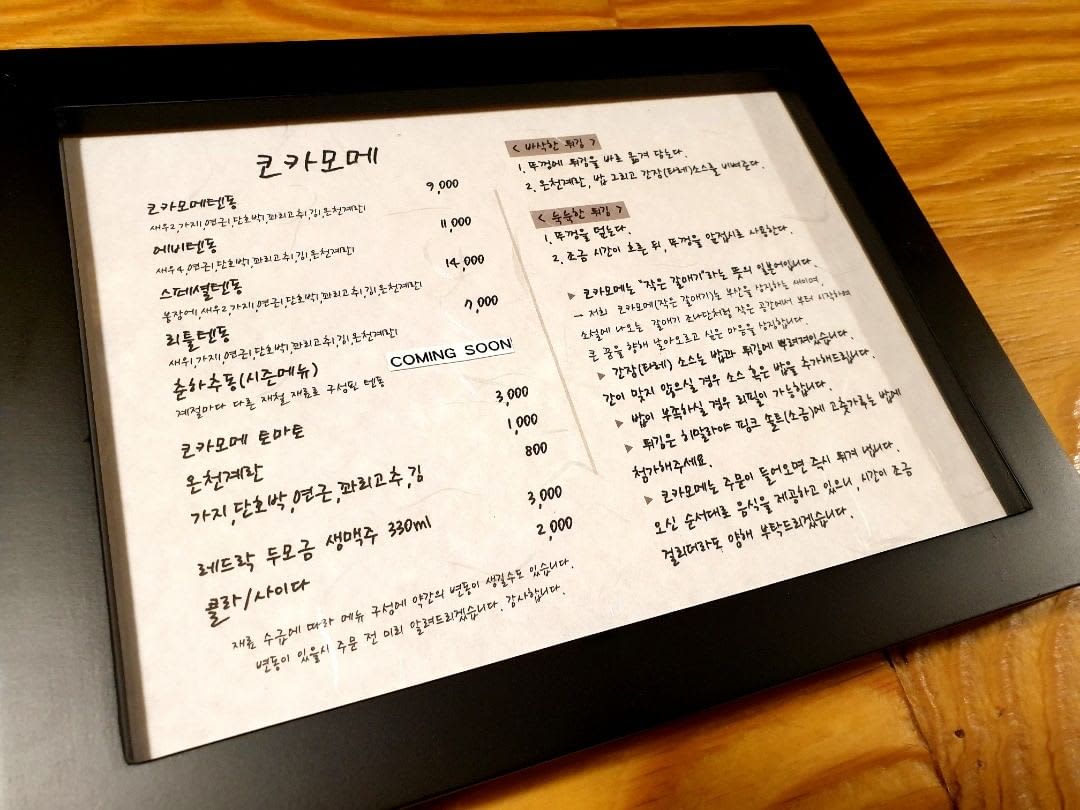 코카모메
코카모메텐동 9,000
새우2,가지,연근,단호박,꽈리고추,김,온천계란
에비텐동 11,000
새우4,연근,단호박,꽈리고추,김,온천계란
스페셜텐동 14,000
붕장어,새우2,가지,연근,단호박,꽈리고추,김,온천계란
리틀텐동 7,000
새우1,가지,연근,단호박,꽈리고추,김,온천계란
춘하추동(시즌메뉴) COMING SOON
계절마다 다른 제철 재료로 구성된 텐동
코카모메 토마토 3,000
온천계란 1,000
가지,단호박,연근,꽈리고추,김 800
레드락 두모금 생맥주 330ml 3,000
콜라/사이다 2,000
재료 수급에 따라 메뉴 구성에 약간의 변동이 생길수도 있습니다.
변동이 있을시 주문 전 미리 알려드리겠습니다. 감사합니다.
< 바삭한 튀김 >
1. 뚜껑에 튀김을 바로 옮겨 담는다.
2. 온천계란, 밥 그리고 간장(타레)소스를 비벼준다.
< 눅눅한 튀김 >
1. 뚜껑을 덮는다.
2. 조금 시간이 흐른 뒤, 뚜껑을 앞접시로 사용한다.
▶ 코카모메는 "작은 갈매기"라는 뜻의 일본어입니다.
→ 저희 코카모메(작은 갈매기)는 부산을 상징하는 새이며,
소설에 나오는 갈매기 조나단처럼 작은 공간에서 부터 시작하여
큰 꿈을 향해 날아오르고 싶은 마음을 상징합니다.
▶ 간장(타레) 소스는 밥과 튀김에 뿌려져있습니다.
간이 맞지 않으실 경우 소스 혹은 밥을 추가해드립니다.
▶ 밥이 부족하실 경우 리필이 가능합니다.
▶ 튀김은 히말라야 핑크 솔트(소금)에 고춧가루는 밥에
첨가해주세요.
▶ 코카모메는 주문이 들어오면 즉시 튀겨 냅니다.
오신 순서대로 음식을 제공하고 있으니, 시간이 조금
걸리더라도 양해 부탁드리겠습니다.